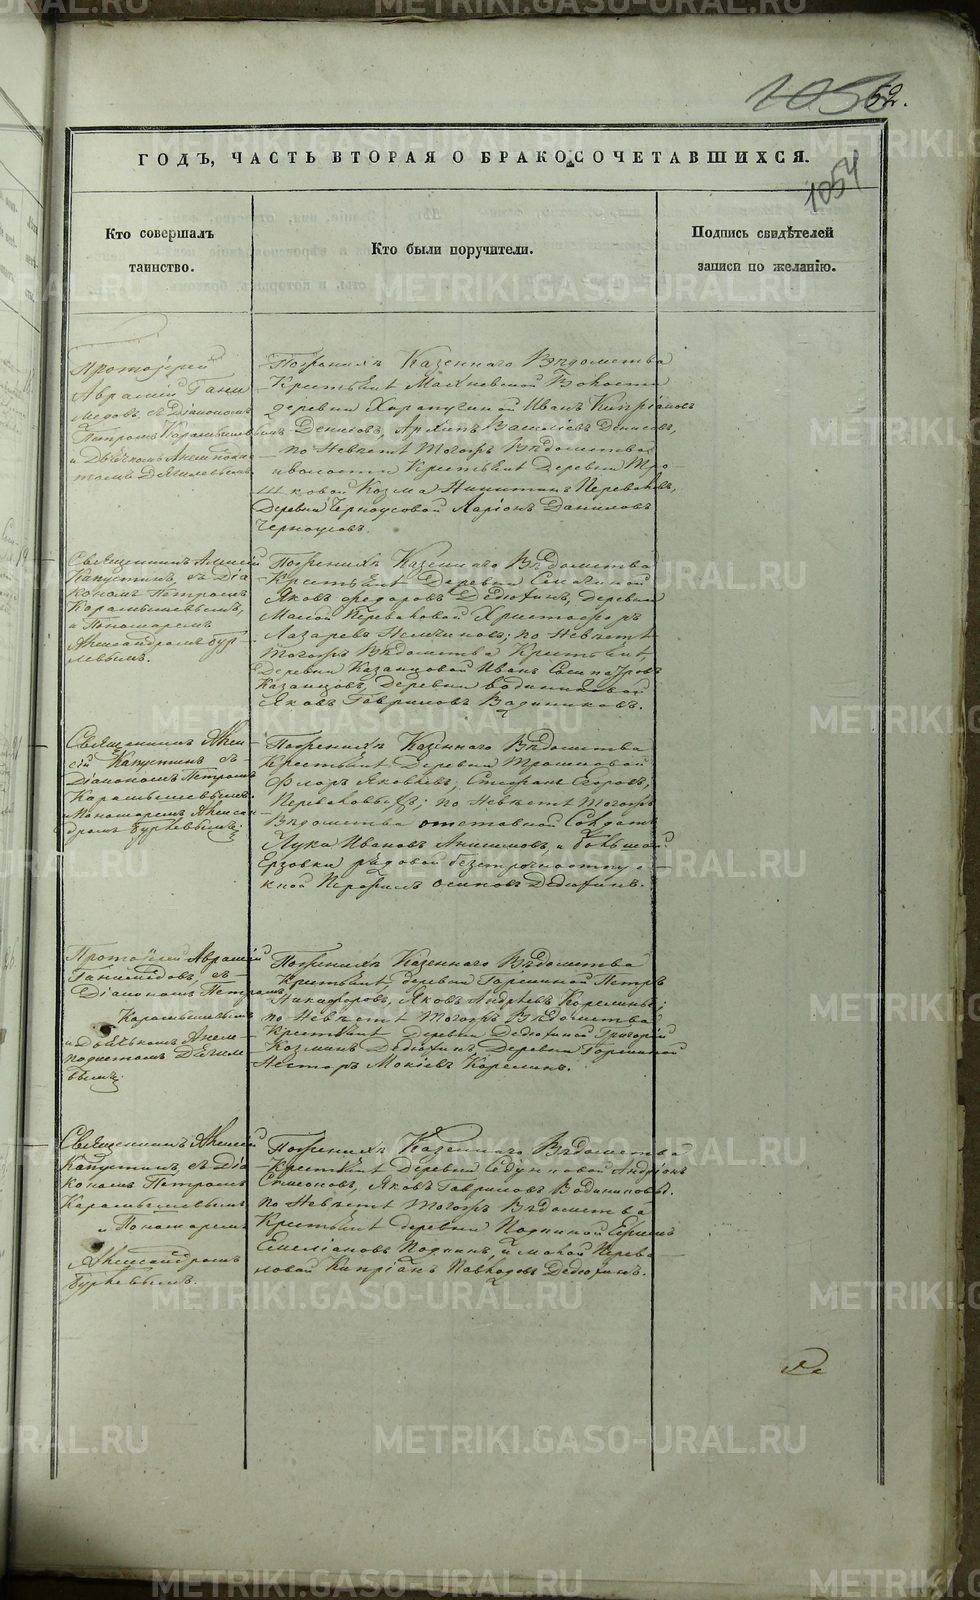 52.
1054
ГОДЪ, ЧАСТЬ ВТОРАЯ О БРАКОСОЧЕТАВШИХСЯ.
Кто совершалъ
таинство.
Кто были поручители.
Подпись свидѣтелей
записи по желанію.
Протоіерей
Аврамій Гани
медовъ съ Діакономъ
Петромъ Карамышевымъ
и Дьячкомъ
По женихѣ Казеннаго Вѣдомства
Крестьяне Махневской Волости
деревни Иванъ Кипріановъ
Денисовъ, Архипъ Василіевъ Денисовъ,
по Невѣстѣ тогожъ Вѣдомства
и волости Крестьяне Деревни
Козма Никитинъ
Деревни Черноусовой Ларіонъ Даниловъ
Черноусовъ.
Священникъ Алексій
Капустинъ, съ Діа
кономъ Петромъ
Карамышевымъ,
и Пономаремъ
Александромъ Бур
левымъ.
По женихѣ Казеннаго Вѣдомства
Крестьяне Деревни
Яковъ Федоровъ Дедюхинъ, Деревни
Малой Христофоръ
Лазаревъ по Невѣстѣ
тогожъ Вѣдомства Крестьяне,
Деревни Казанцовой Иванъ Сосипатровъ
Казанцовъ, Деревни Водениковой
Яковъ Гавриловъ Водениковъ.
Священникъ Алек
сій Капустинъ съ
Діакономъ Петромъ
Карамышевымъ
и Пономаремъ Алекса
ндромъ Бурлевымъ.
По женихѣ Казеннаго Вѣдомства
Крестьяне Деревни Трошковой
Флоръ Яковлевъ, Стефанъ Егоровъ,
по Невѣстѣ тогожъ
Вѣдомства отставной Солдатъ
Лука Ивановъ Анисимовъ и большой
Ерзовки рядовой
Дедюхинъ.
Протоіерей Аврамій
Ганимедовъ, съ
Діакономъ Петромъ
Карамышевымъ
и Дьячкомъ
По женихѣ Казеннаго Вѣдомства
Крестьяне, деревни Петръ
Никифоровъ, Яковъ Андреевъ Корелины;
по Невѣстѣ тогожъ Вѣдомства
Крестьяне Деревни Дедюхиной Григорій
Козминъ Дедюхинъ Деревни
Несторъ Мокіевъ Корелинъ.
Священникъ Алексій
Капустинъ, съ Діа
кономъ Петромъ
Карамышевымъ
и Пономаремъ
Александромъ
Бурлевымъ.
По женихѣ Казеннаго Вѣдомства
Крестьяне Деревни Андріонъ
Симеоновъ, Яковъ Гавриловъ Водениковы.
по Невѣстѣ тогожъ Вѣдомства
Крестьяне деревни Подкиной
Емеліановъ Подкинъ, и малой
Кипріанъ Павловъ Дедюхинъ.
METRIKI.GASO-URAL.RU